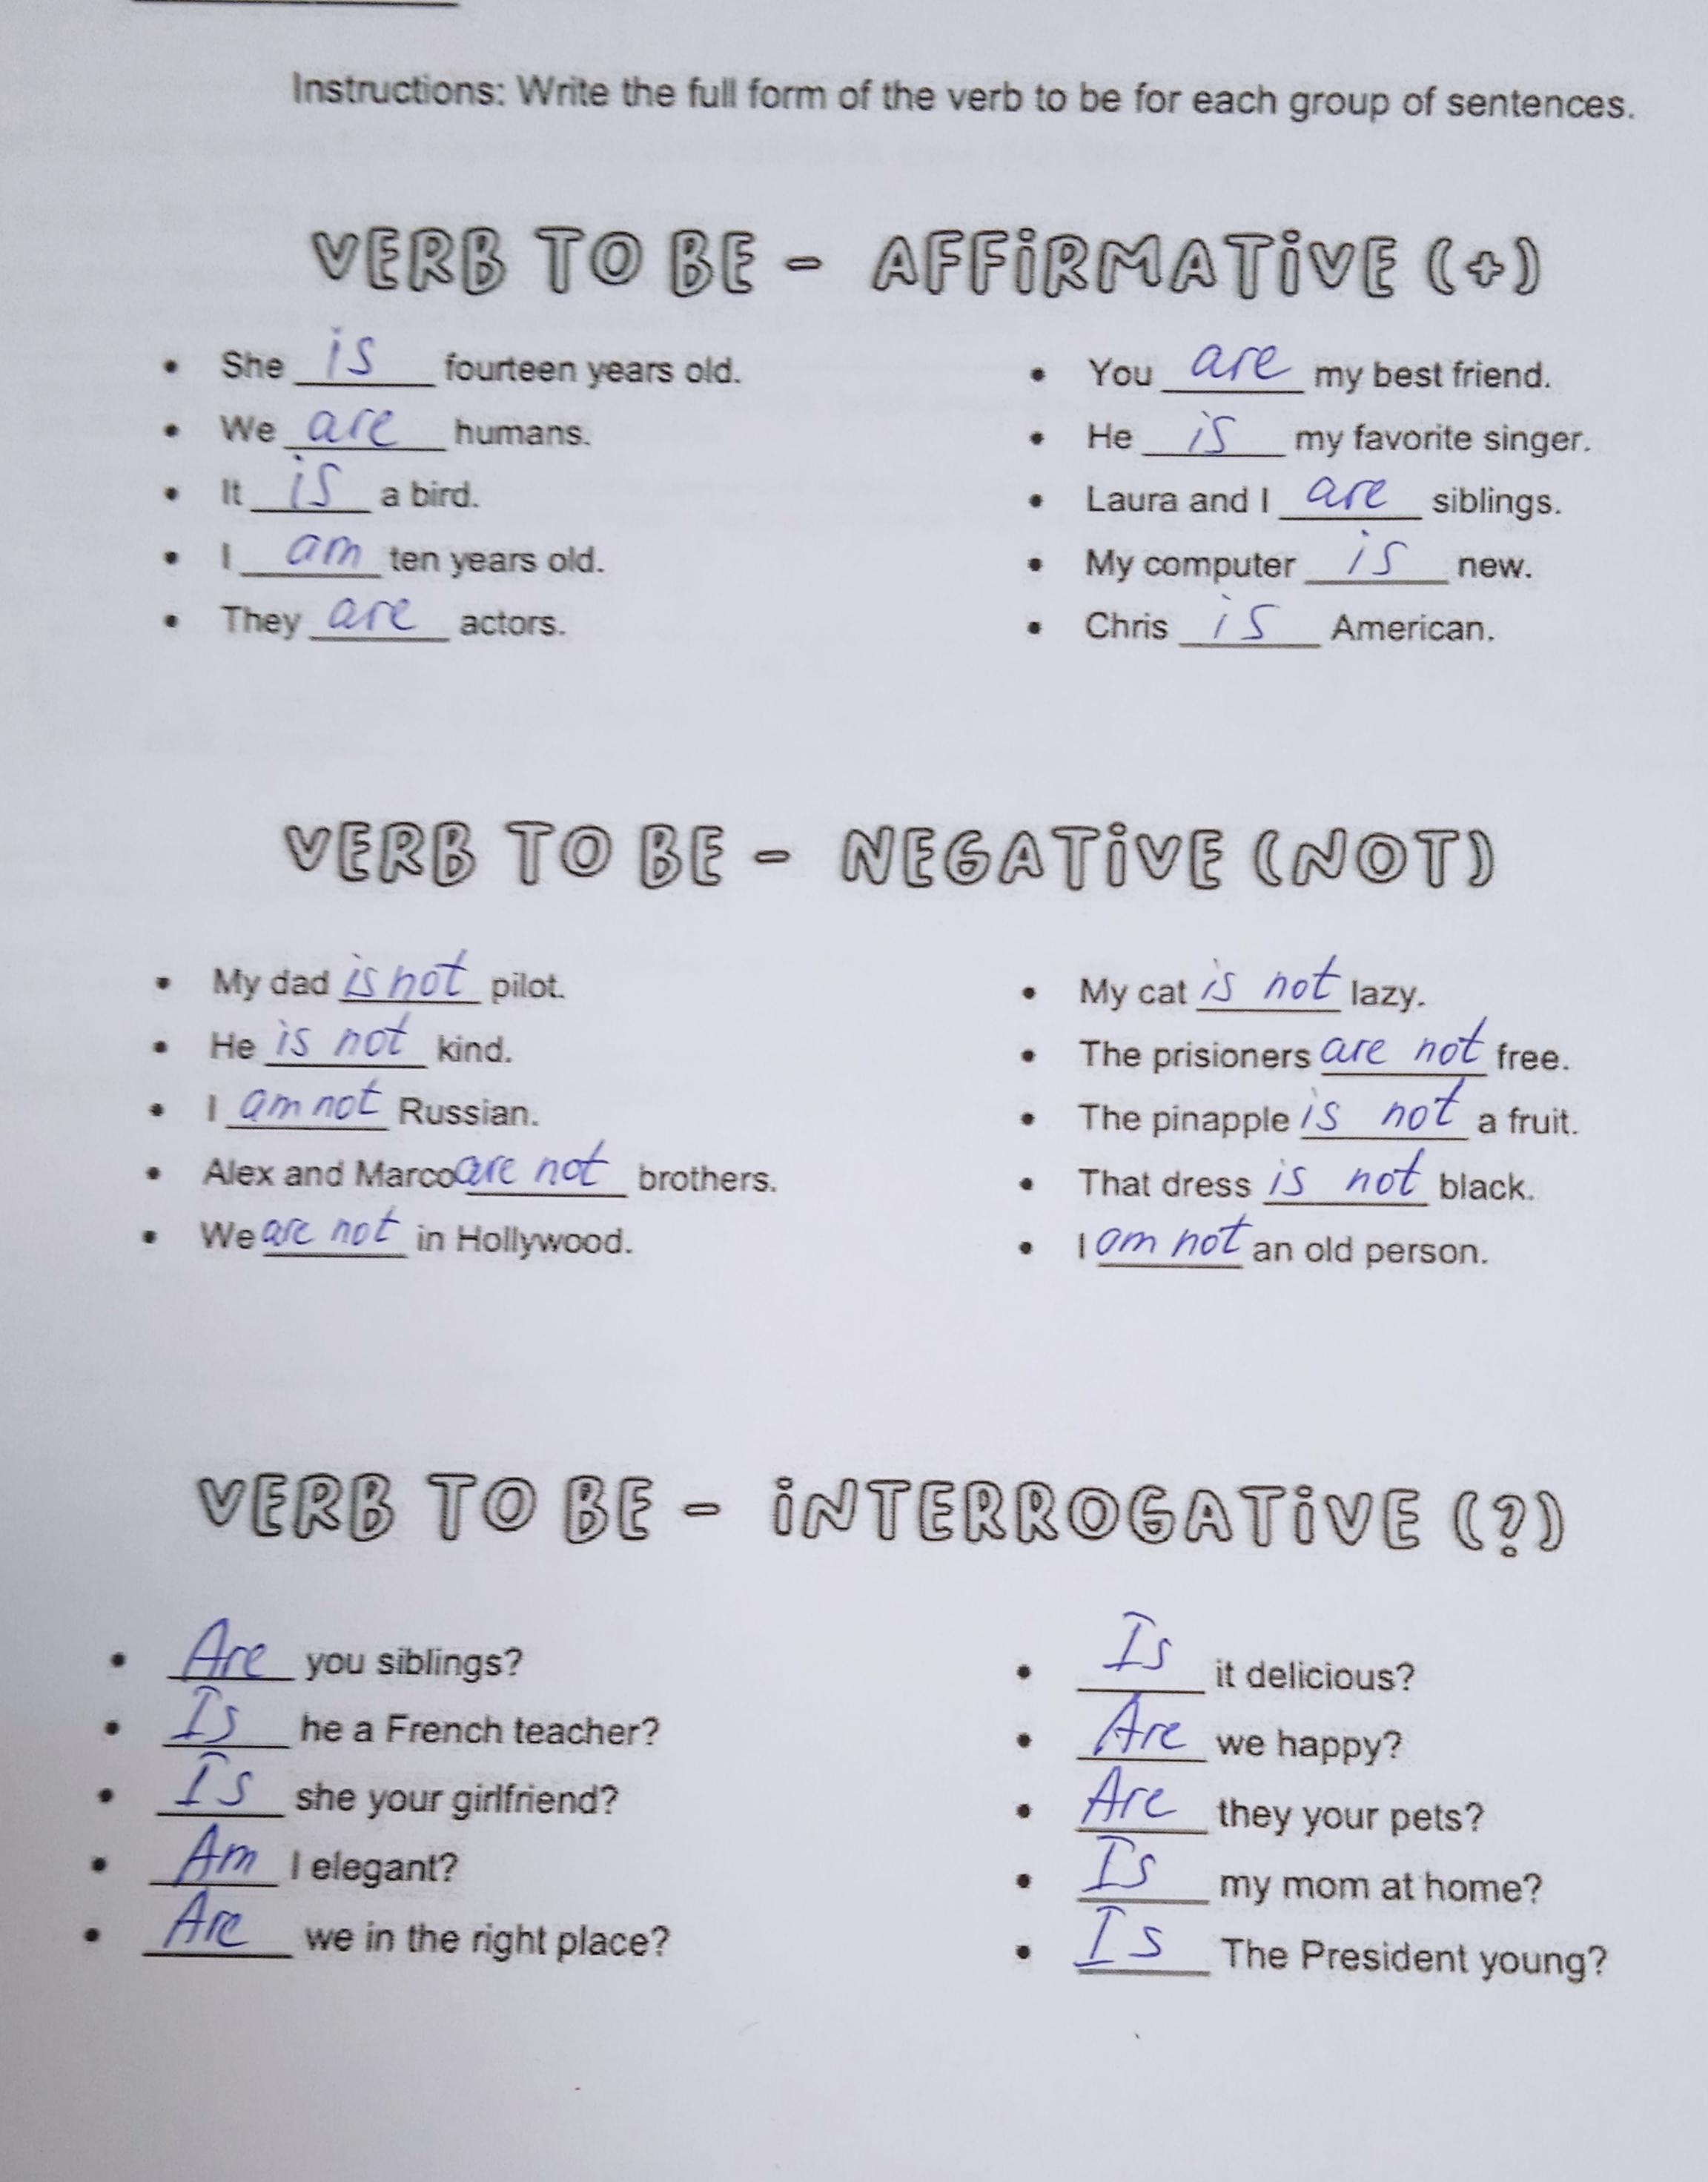 Instructions: Write the full form of the verb to be for each group of sentences.
VERB TO BE - AFFIRMATIVE (+)
• She is fourteen years old.
• We are humans.
• It is a bird.
• I am ten years old.
• They are actors.
• You are my best friend.
• He is my favorite singer.
• Laura and I are siblings.
• My computer is new.
• Chris is American.
VERB TO BE - NEGATIVE (NOT)
• My dad is not pilot.
• He is not kind.
• I am not Russian.
• Alex and Marco are not brothers.
• We are not in Hollywood.
• My cat is not lazy.
• The prisioners are not free.
• The pinapple is not a fruit.
• That dress is not black.
• I am not an old person.
VERB TO BE - INTERROGATIVE (?)
• Are you siblings?
• Is he a French teacher?
• Is she your girlfriend?
• Am I elegant?
• Are we in the right place?
• Is it delicious?
• Are we happy?
• Are they your pets?
• Is my mom at home?
• Is The President young?